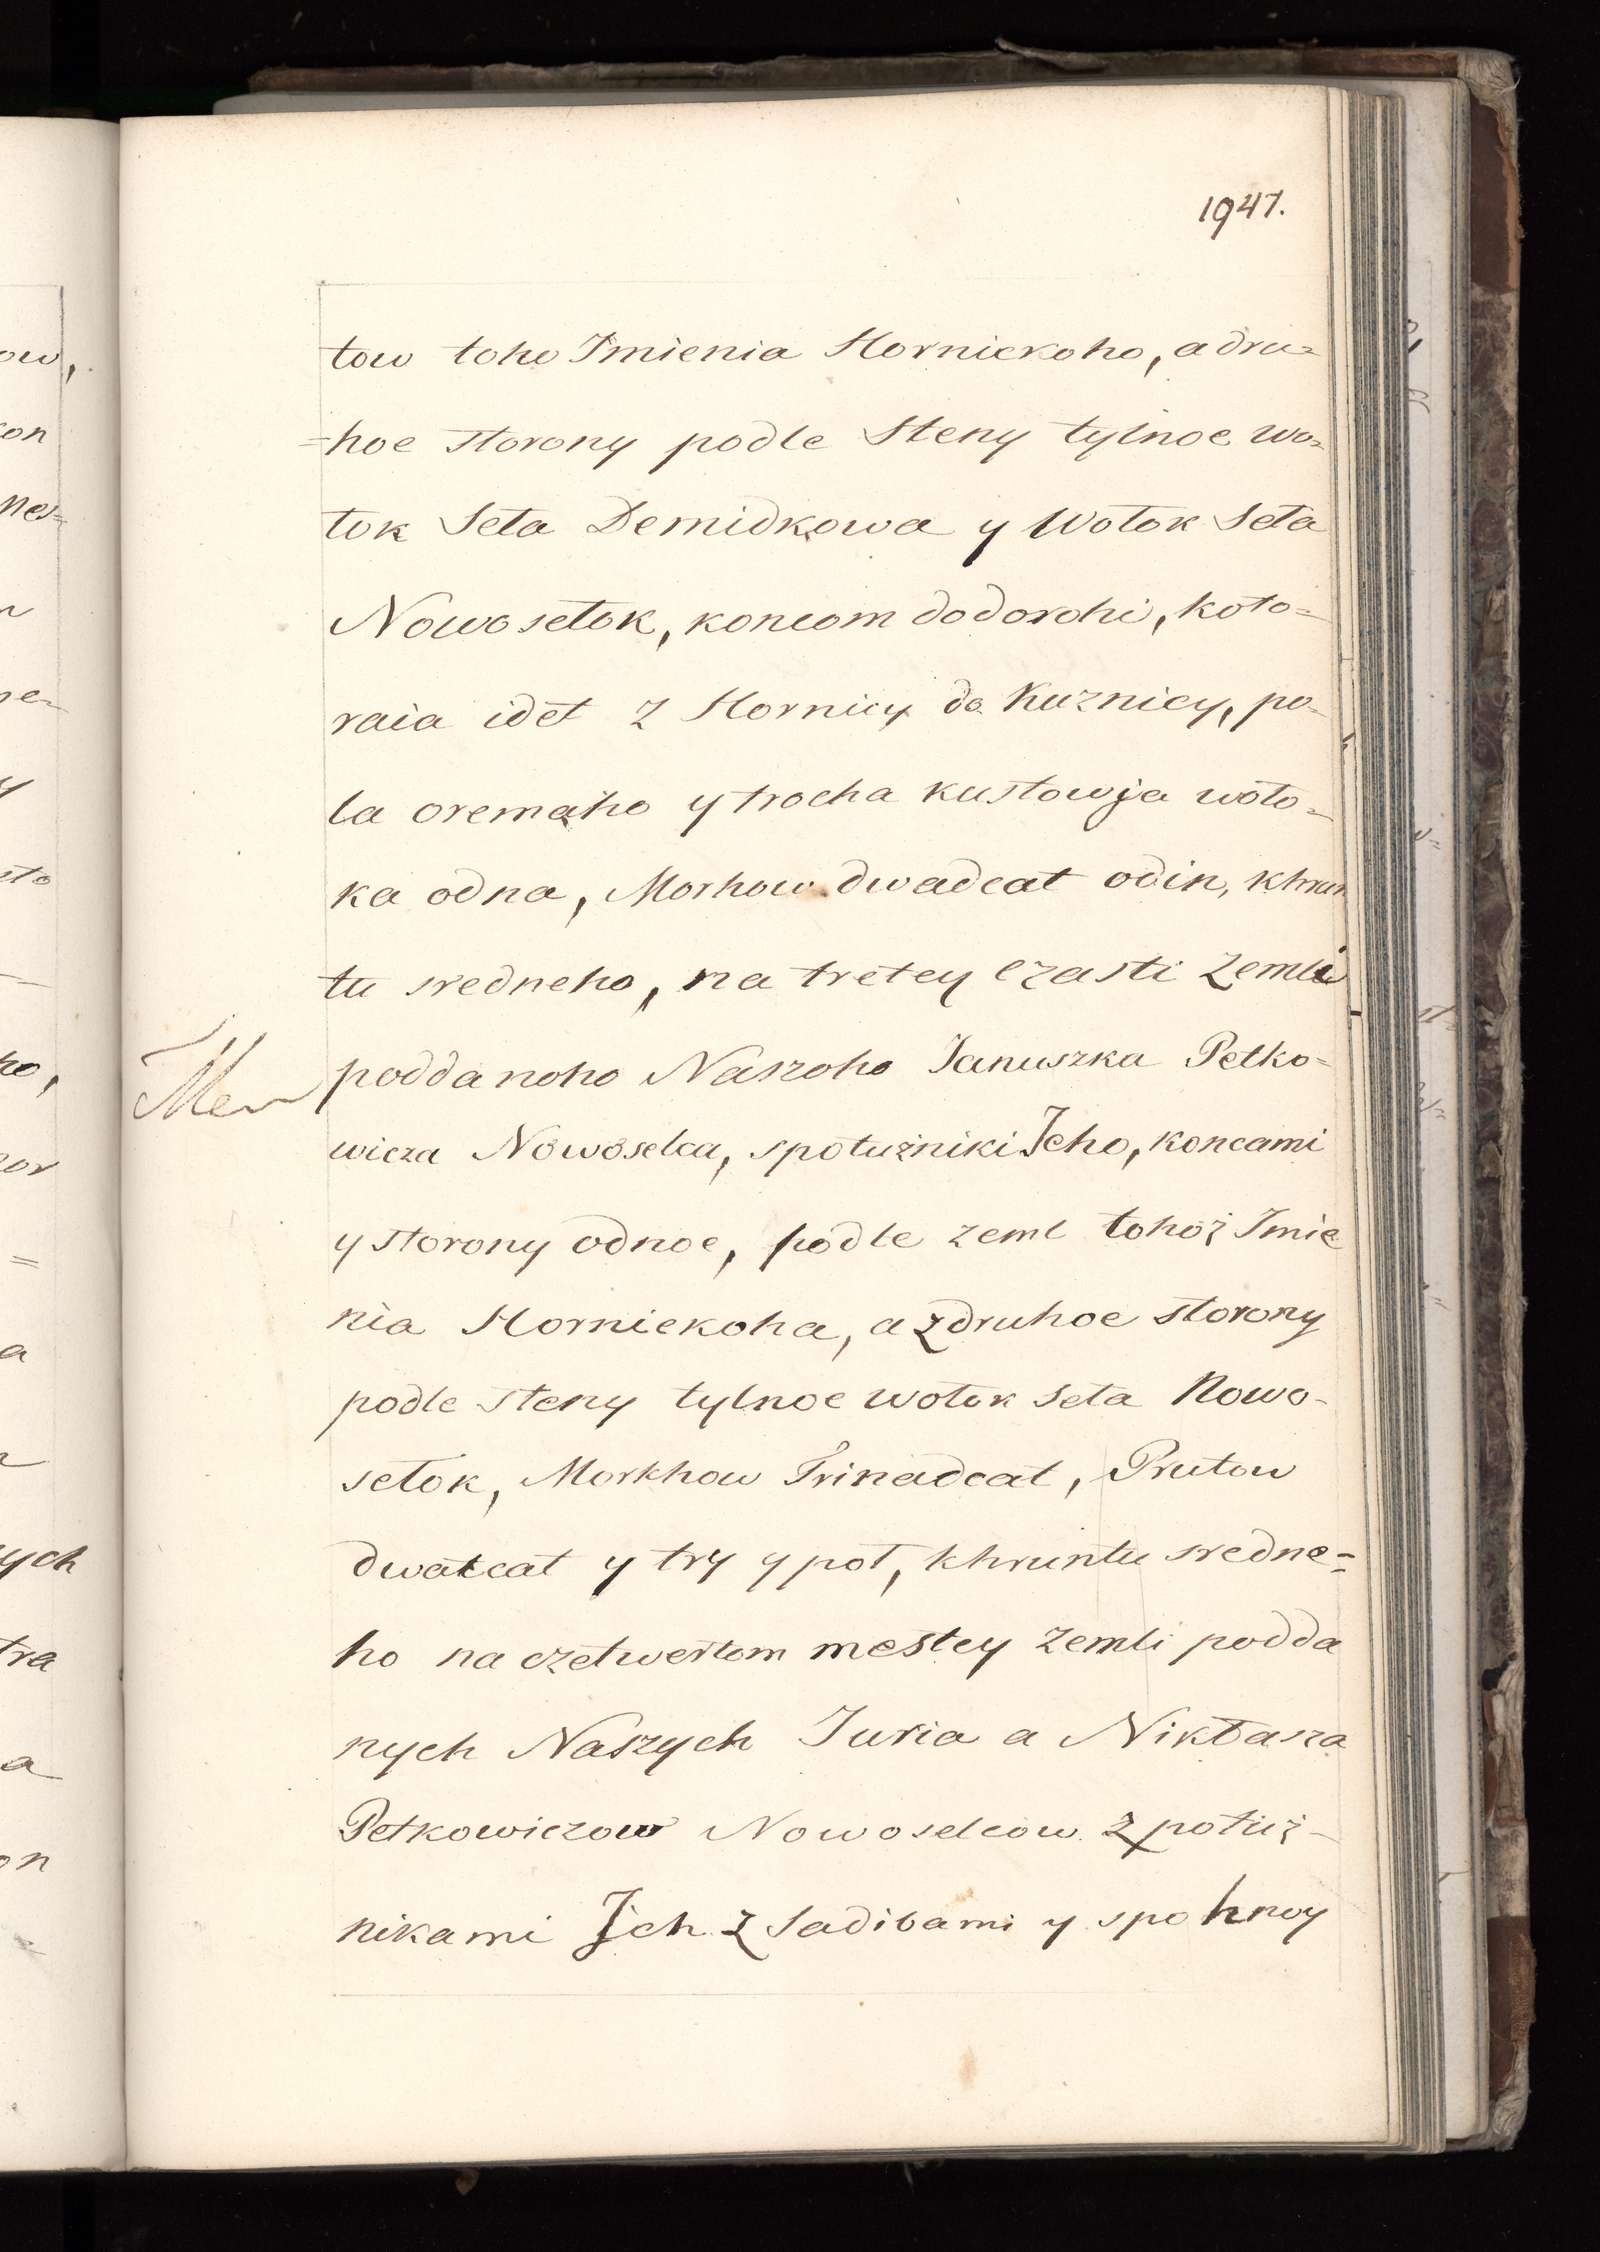 1947.
tow toho Imienia Hornickoho, a dru=
=hoe storony podle Steny tylnoe wo=
łok Seła Demidkowa y Wołok Seła
Nowosełok, koncom do dorohi, koto=
raia idet z Hornicy do Kuznicy, po=
la oremaho y trocha kustowja woło=
ka odna, Morhow dwadcat odin, khrun
tu sredneho, na tretey czasti Zemli
poddanoho Naszoho Januszka Petko=
wicza Nowoselca, spotużniki Jeho, koncami
y storony odnoe, podle zeml tohoż Imie
nia Hornickoha, a z druhoe storony
podle steny tylnoe wołok Seła Nowo-
sełok, Morkhow Trinadcat, Prutow
dwatcat y try y poł, khruntu sredne=
ho na czetwertom mestcy Zemli podda
nych Naszych Juria a Nikłasza
Petkowiczow Nowoselcow z potuż-
nikami Jch z Sadibami y spohnoy